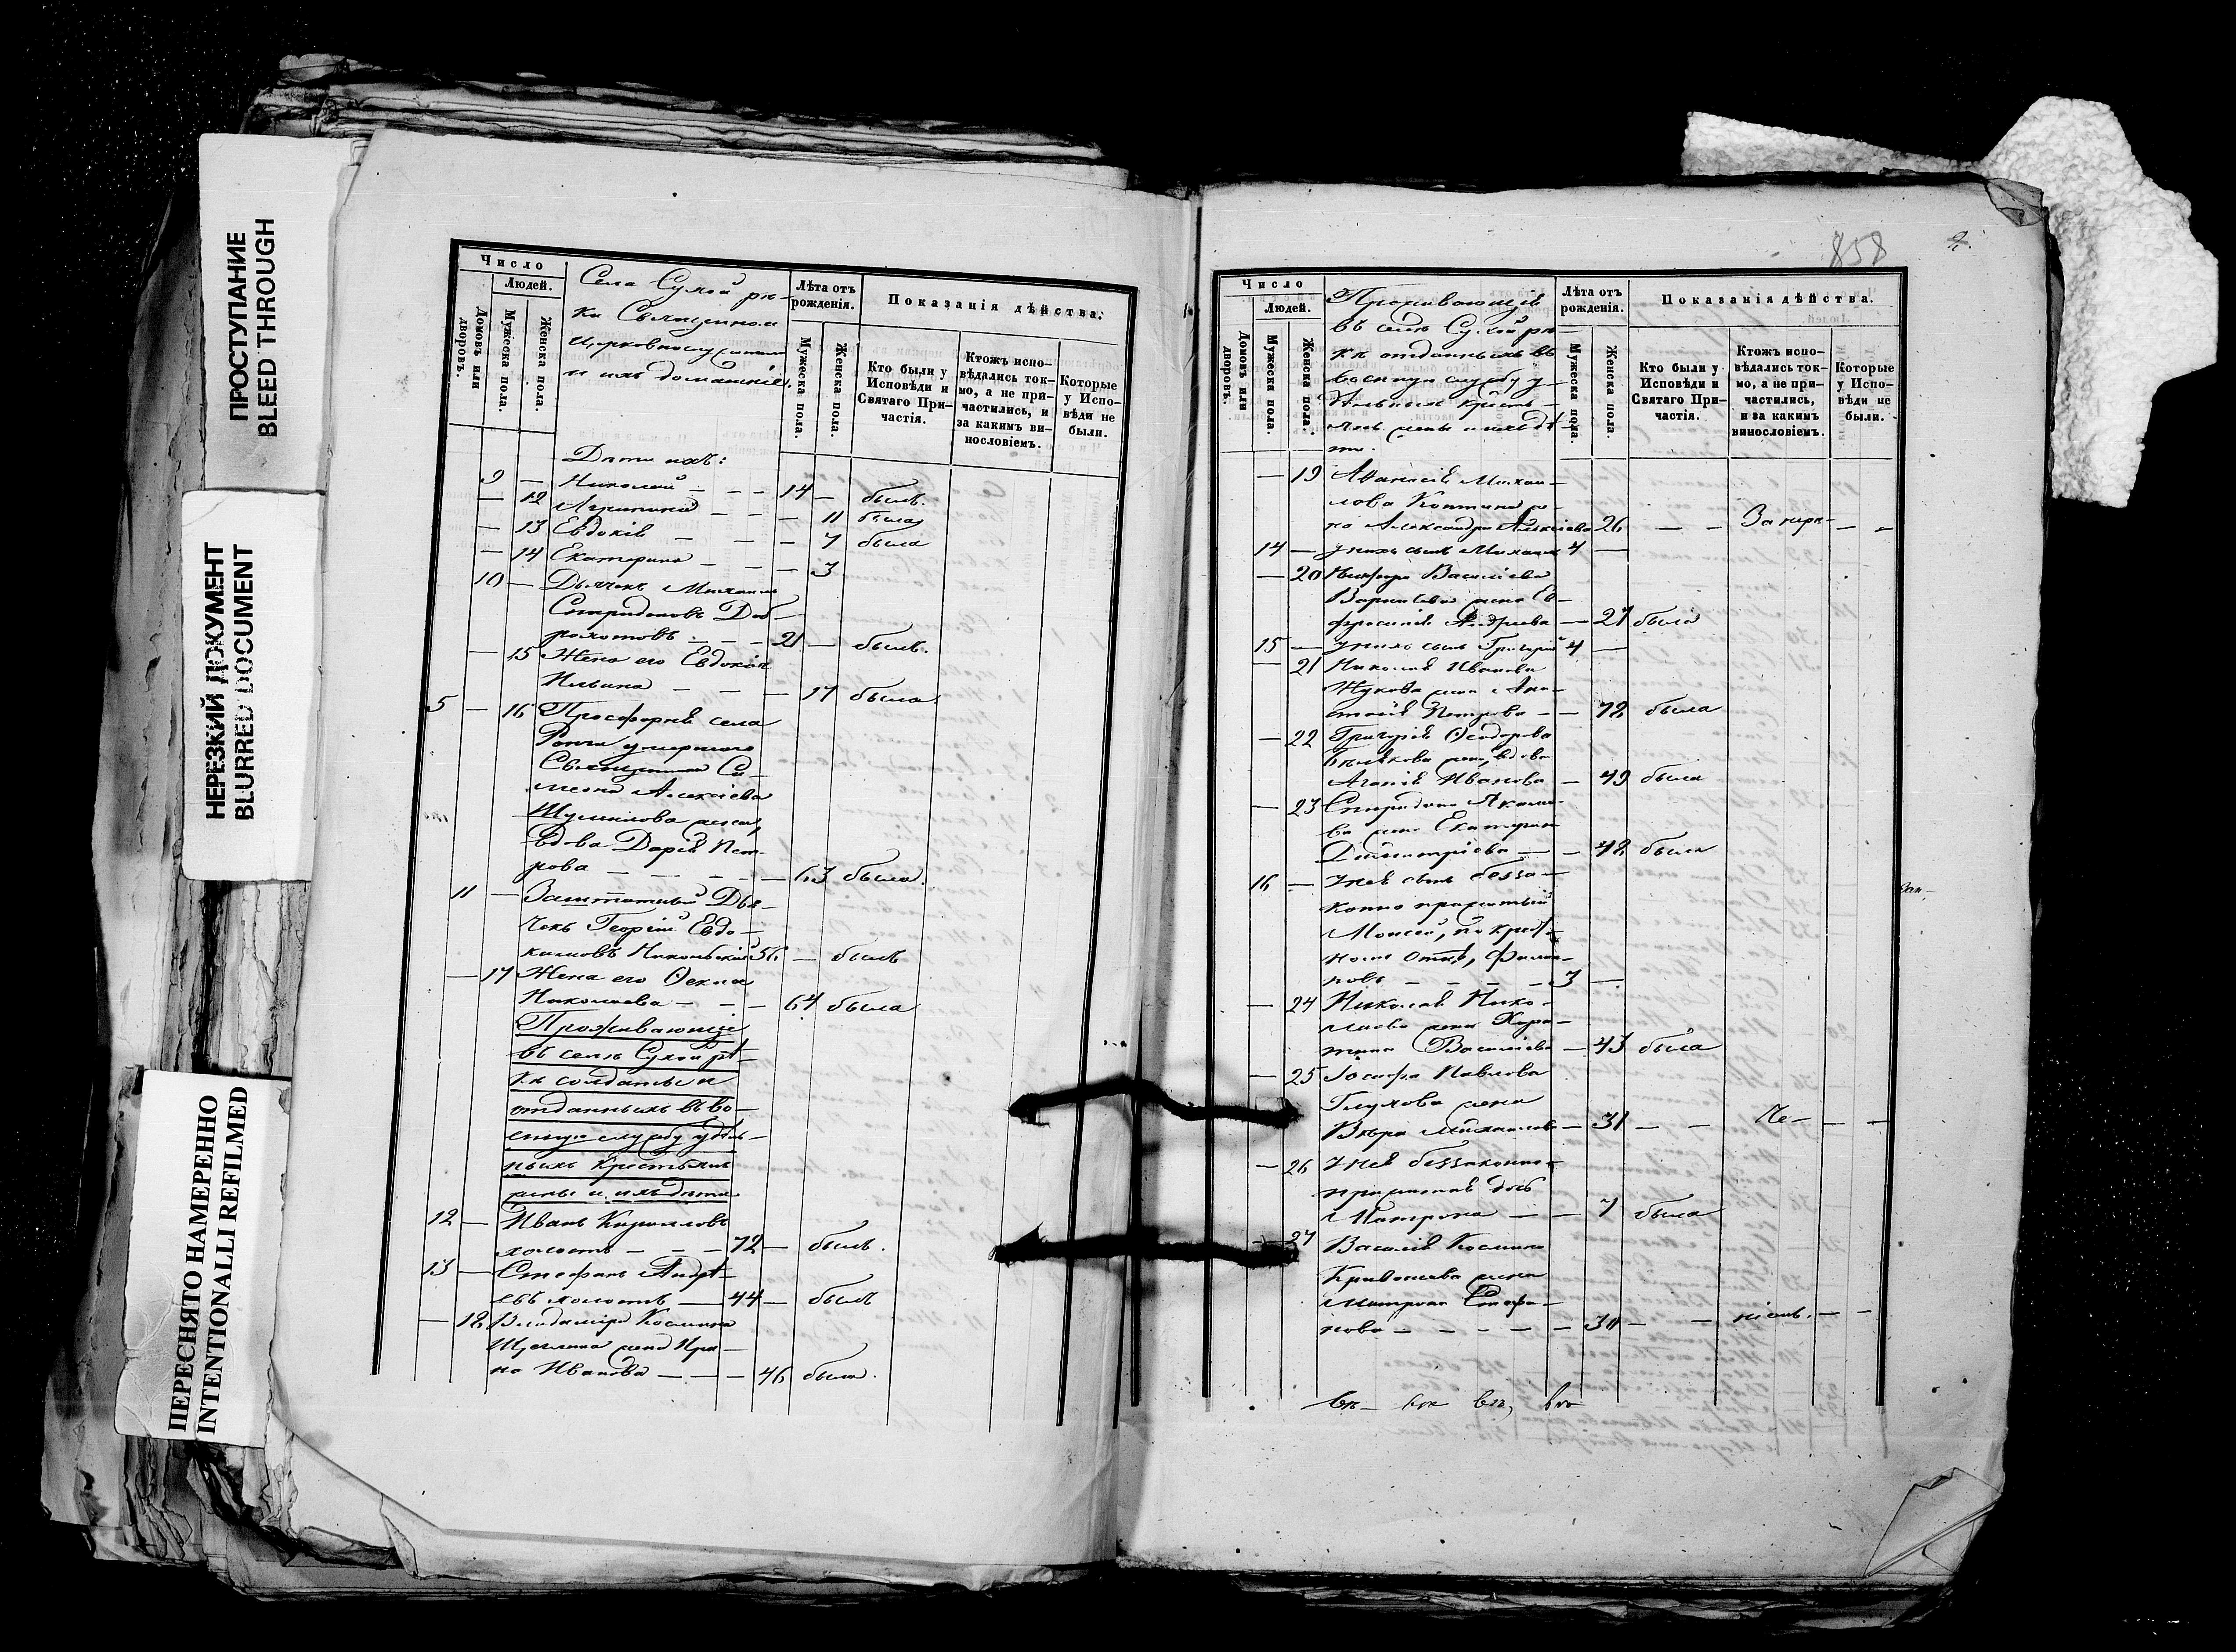 ПРОСТУПАНИЕ
BLEED THROUGH
НЕРЕЗКИЙ ДОКУМЕНТ
BLURRED DOCUMENT
ПЕРЕСНЯТО НАМЕРЕННО
INTENTIONALLI REFILMED
Число
Людей.
Домовъ или дворовъ.
Мужеска пола.
Женска пола.
Села Сухой рѣ-
ки Священно и
церковнослужители
и ихъ домашніе.
Лѣта отъ рожденія.
Мужеска пола.
Женска пола.
Показанія дѣйства.
Кто были у Исповѣди и Святаго Причастія.
Ктожъ исповѣдались токмо, а не причастились, и за какимъ винословіемъ.
Которые у Исповѣди не были.
Дѣти ихъ:
9 — Николай — — — 14 — былъ.
— 12 — — — 11 была
— 13 Евдокія — — — 7 была
— 14 Екатерина — — — 3
10 — Дьячекъ Михаилъ
Спиридоновъ Доб-
— — — 21 — былъ.
— 15 Жена его Евдокія
Ильина — — — 17 была.
5 — 16 Просфорня села
Ронги умершаго
Священника Си-
меона Алексіева
Шумилова жена,
вдова Дарія Пет-
рова — — — — 63 была.
11 — Заштатный Дья-
чекъ Георгій Евдо-
кимовъ Никольскій 56 — былъ
— 17 Жена его Ѳекла
Николаева — — — 64 была
Проживающіе
въ селѣ Сухой рѣ-
кѣ солдаты и
отданныхъ въ во-
енную службу удѣль-
ныхъ крестьянъ
жены и ихъ дѣти
12 — Иванъ Кириловъ
холостъ — — — 72 — былъ.
13 — Стефанъ Андрѣ-
евъ холостъ — 44 — былъ
— 18 Владиміра Космина
Щеглина жена Ири-
на Иванова — — — 46 была.
858
2.
Число
Людей.
Домовъ или дворовъ.
Мужеска пола.
Женска пола.
Проживающіе
въ селѣ Сухой рѣ-
кѣ отданныхъ въ
военную службу у-
дѣльныхъ кресть-
янъ жены и ихъ дѣ-
ти.
Лѣта отъ рожденія.
Мужеска пола.
Женска пола.
Показанія дѣйства.
Кто были у Исповѣди и Святаго Причастія.
Ктожъ исповѣдались токмо, а не причастились, и за какимъ винословіемъ.
Которые у Исповѣди не были.
— 19 Аѳанасія Михаи-
лова Коптина же-
на Александра Алексіева 26 — — —
14 — у нихъ сынъ Михаилъ 4 —
— 20 Василіева
жена Ев-
фросинія Андреева — 27 была
15 — у нихъ сынъ Григорій 4 —
— 21 Николая Иванова
Жукова жена Ана-
стасія Петрова — — 72 была
— 22 Григорія Ѳеодорова
Бѣлякова жена, вдова
Агапія Иванова — 49 была
— 23 Спиридона Якимо-
ва жена Екатерина
Димитріева — — 48 была
16 — У нея сынъ безза-
конно прижитый
Моисей, по крест-
ному отцу, Фили-
повъ — — — — 3 —
— 24 Николая Нико-
лаева жена Хари-
тина Василіева — 43 была
— 25 Іосифа Павлова
Глухова жена
Вѣра Михайлова — 31 — — Че- — —
— 26 У нея беззаконно
прижитая дочь
Матрона — — 7 была
— 27 Василія Космина
жена
Матрона Стефа-
нова — — — — — 30 — — — —